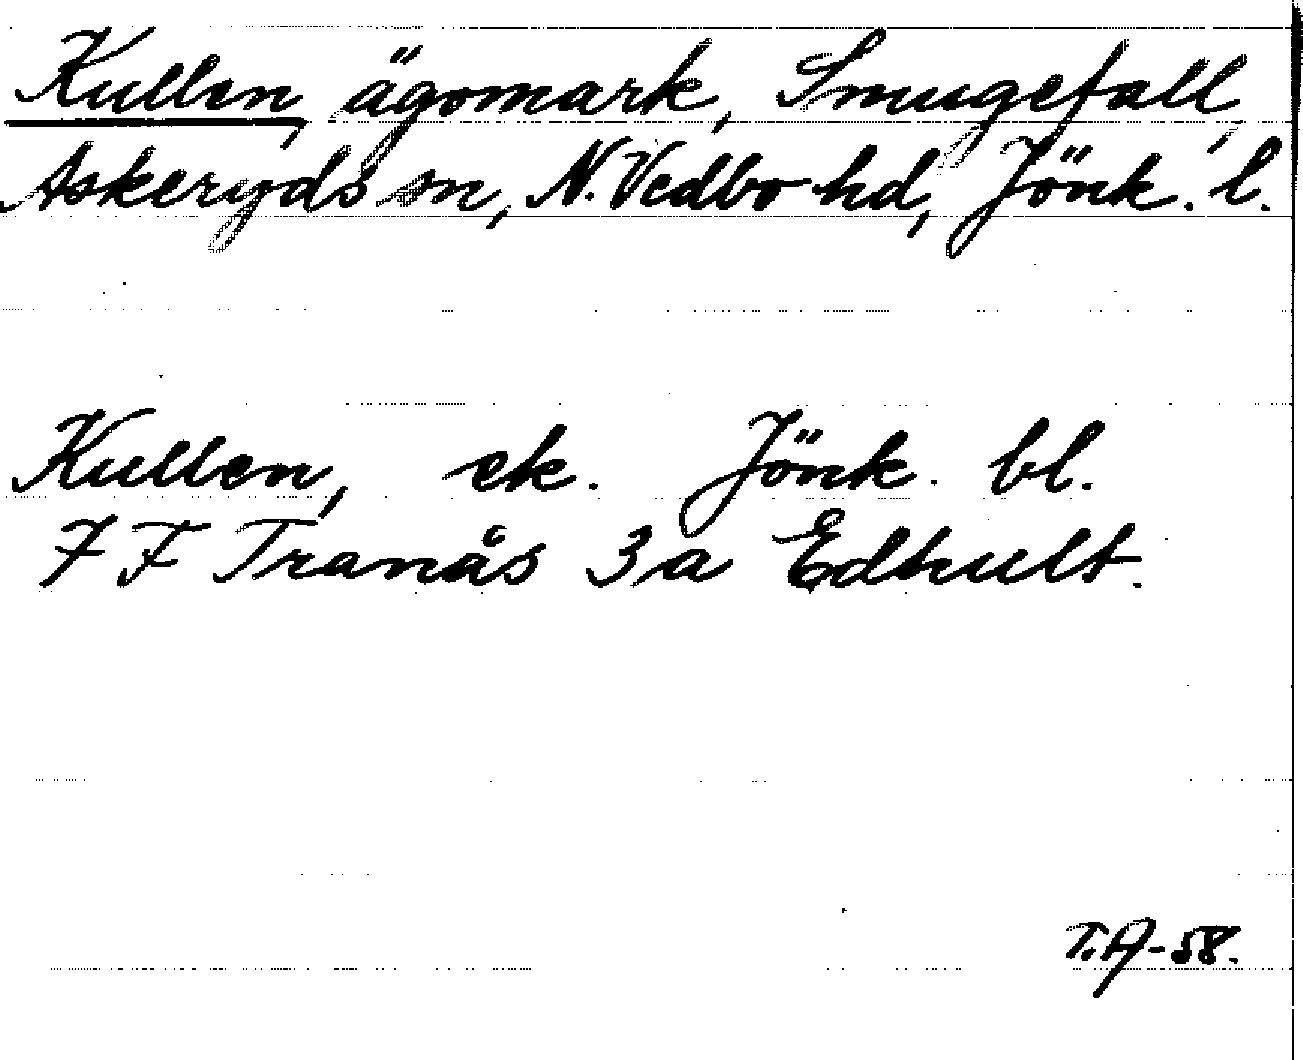 Kullen, ägomark, Smugefall,
Askeryds sn, N. Vedbo hd, Jönk. l.
Kullen, ek. Jönk. bl.
7 F Tranås 3 a Edhult.
T.A-58.